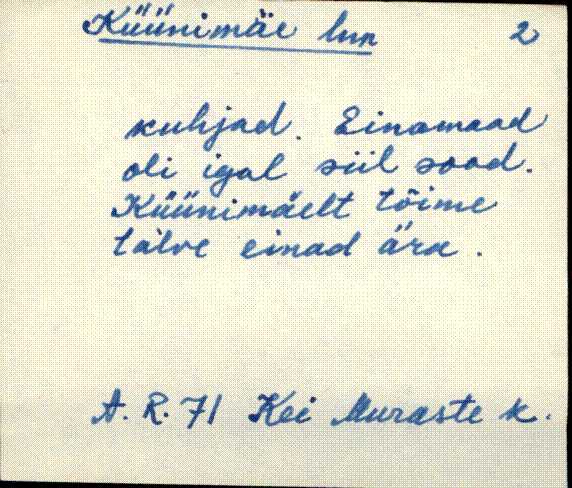 Küünimäe lnn 2
kuhjad. Einamaad
oli igal siil sood.
Küünimäelt tõime
talve einad ära.
A. R. 71 Kei Muraste k.